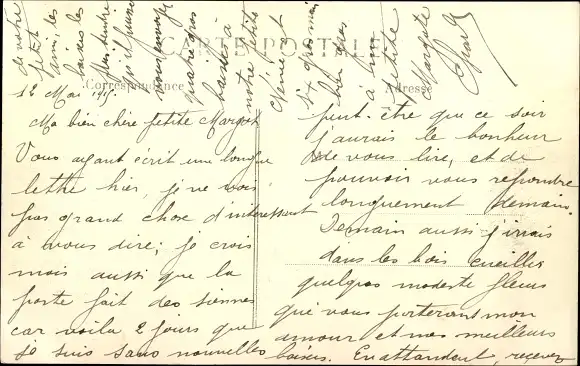 CARTE POSTALE
Correspondance
Adresse
12 Mai 1915.
Ma bien chère petite Margot
Vous ayant écrit une longue
lettre hier, je ne vois
pas grand chose d'intéressant
à vous dire; je crois
mois aussi que la
poste fait des siennes
car voila 2 jours que
je suis sans nouvelles
peut-être que ce soir
j'aurais le bonheur
de vous lire, et de
pouvoir vous repondre
longuement demain.
Demain aussi j'irais
dans les bois cueillir
quelques modeste fleurs
que vous porterons mon
amour et mes meilleurs
baisers. En attendent, recevez
de votre
petit
ami, les
baisers les
plus tendre
qu'il puisse
vous envoyer
quatre gros
baisers à
notre petite
et
bien gros
à ma
petite
Margote
Charles